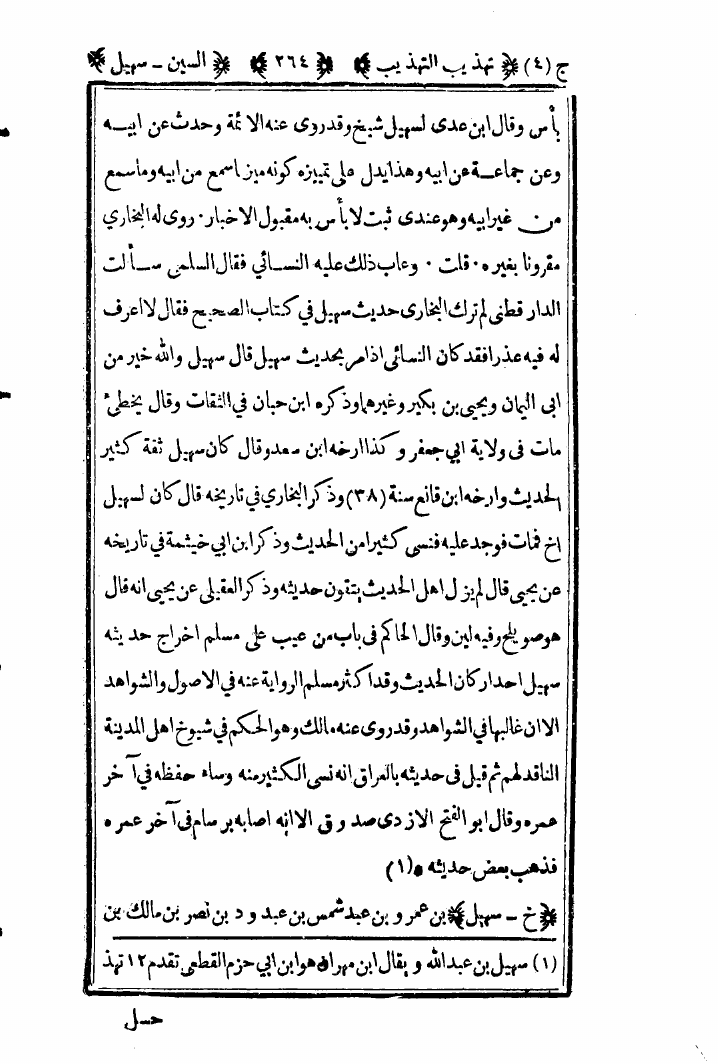 ج (٤) ﴿ تهذيب التهذيب ﴾ ﴿ ٢٦٤ ﴾ ﴿ السين - سهيل ﴾
بأس وقال ابن عدى لسهيل شيخ وقد روى عنه الائمة وحدث عن ابيه
وعن جماعة عن ابيه وهذا يدل على تمييزه كونه ميز ما سمع من ابيه وما سمع
من غير ابيه وهو عندى ثبت لا بأس به مقبول الاخبار · روى له البخاري
مقرونا بغيره · قلت · وعاب ذلك عليه النسائي فقال السلمى سألت
الدار قطنى لم ترك البخارى حديث سهيل في كتاب الصحيح فقال لا اعرف
له فيه عذرا فقد كان النسائى اذا مر بحديث سهيل قال سهيل والله خير من
ابى اليمان ويحيى بن بكير وغيرهما وذكره ابن حبان في الثقات وقال يخطئ
مات فى ولاية ابي جعفر وكذا ارخه ابن سعد وقال كان سهيل ثقة كثير
الحديث وارخه ابن قانع سنة (٣٨) وذكر البخاري في تاريخه قال كان لسهيل
اخ فمات فوجد عليه فنسى كثيرا من الحديث وذكر ابن ابي خيثمة في تاريخه
عن يحيى قال لم يزل اهل الحديث يتقون حديثه وذكر العقيلى عن يحيى انه قال
هو صويلح وفيه لين وقال الحاكم فى باب من عيب على مسلم اخراج حديثه
سهيل احد اركان الحديث وقد اكثر مسلم الرواية عنه في الاصول والشواهد
الا ان غالبها في الشواهد وقد روى عنه مالك وهو الحكم في شيوخ اهل المدينة
الناقد لهم ثم قيل فى حديثه بالعراق انه نسى الكثير منه وساء حفظه في آخر
عمره وقال ابو الفتح الازدى صدوق الا انه اصابه برسام فى آخر عمره
فذهب بعض حديثه * (١)
﴿ خ - سهيل ﴾ بن عمرو بن عبد شمس بن عبد ود بن نصر بن مالك بن
(١) سهيل بن عبدالله ويقال ابن مهران هو ابن ابي حزم القطعى تقدم ١٢ تهذ
حسل